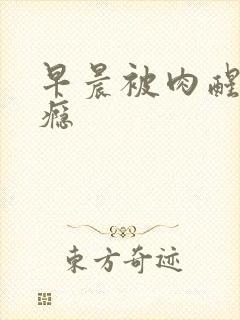 早晨被肉醒
瘾
东方奇迹